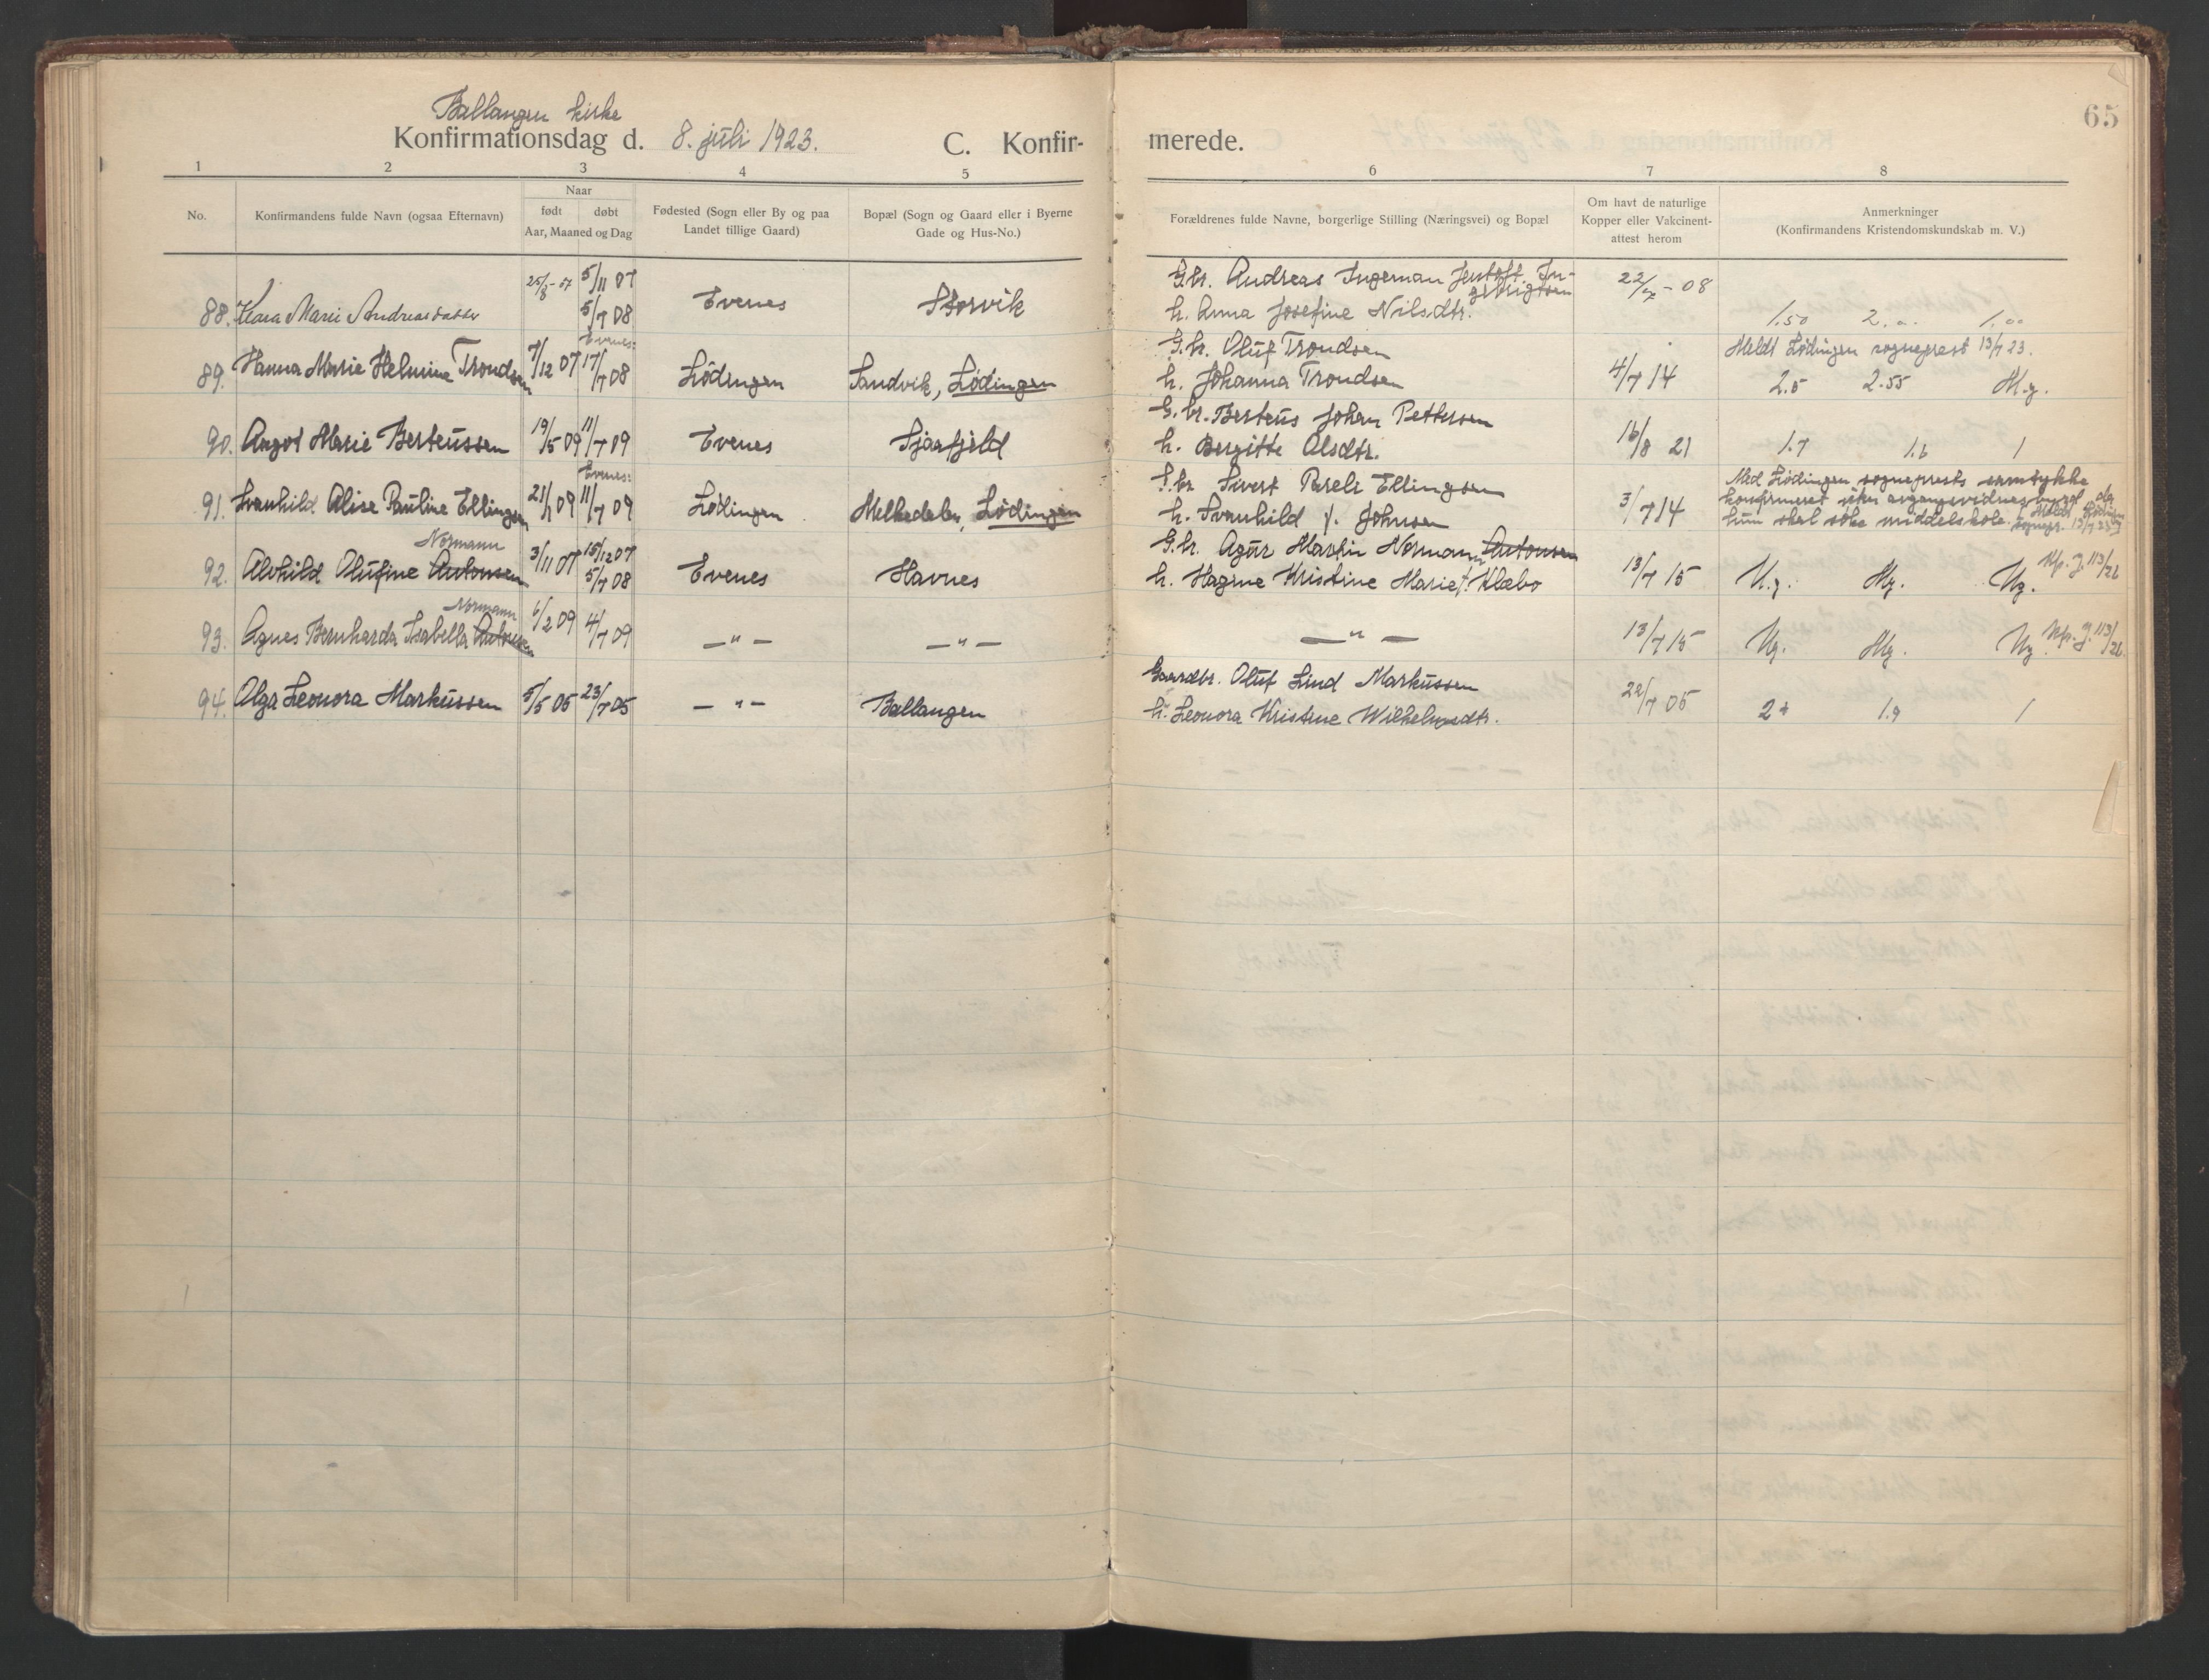 65
Ballangen kirke
Konfirmationsdag d. 8. juli 1923. C. Konfir- merede.
1 2 3 4 5 6 7 8
No. Konfirmandens fulde Navn (ogsaa Efternavn) Naar født døbt Aar, Maaned og Dag Fødested (Sogn eller By og paa Landet tillige Gaard) Bopæl (Sogn og Gaard eller i Byerne Gade og Hus-No.) Forældrenes fulde Navne, borgerlige Stilling (Næringsvei) og Bopæl Om havt de naturlige Kopper eller Vakcinent- attest herom Anmerkninger (Konfirmandens Kristendomskundskab m. V.)
25/8-07 5/11 07 G.br. Andreas Ingeman Jentoft In-
gebrigtsen
88. Klara Marie Andreasdatter 5/7 08 Evenes Storvik h. Anna Josefine Nilsdtr. 1.50 2.00 1.00
Evenes: G.br. Oluf Trondsen Meldt Lødingen sogneprest 13/7 23.
89. Hanna Marie Helmine Trondsen 7/12 07 17/7 08 Lødingen Sandvik, Lødingen h. Johanna Trondsen 4/7 14 2.5 2.55 M.g.
G.br. Berteus Johan Pettersen
90. Angot Marie Berteussen 19/5 09 11/7 09 Evenes Sjaafjeld h. Bergitte Olsdtr. 16/8 21 1.7 1.6 1
Evenes: G.br. Sivert Parels Ellingsen Med Lødingen sogneprests samtykke
91. Svanhild Alise Pauline Ellingsen 21/1 09 11/7 09 Lødingen Melkedalen, Lødingen h. Svanhild f. Johnsen 3/7 14 konfirmeret uten avgangsvidnesbyrd, da
hun skal søke middelskole. Meldt Lødingen sognepr. 13/7 23
Normann G.br. Agur Martin Normann Antonsen
92. Alvhild Olufine Antonsen 3/11 07 15/12 07 5/7 08 Evenes Havnes h. Hagine Kristine Marie f. Klæbo 13/7 15 M.g. Mg. Mg. Kp. J. 113/26
Normann
93. Agnes Bernharda Isabella Antonsen 6/2 09 4/7 09 — " — — " — — " — 13/7 15 Mg. Mg. Mg. Kp. J. 113/26.
Gaardbr. Oluf Lind Markussen
94. Olga Leonora Markussen 5/5 05 23/7 05 — " — Ballangen h. Leonora Kristine Wilhelmsdtr. 22/7 05 2+ 1.9 1